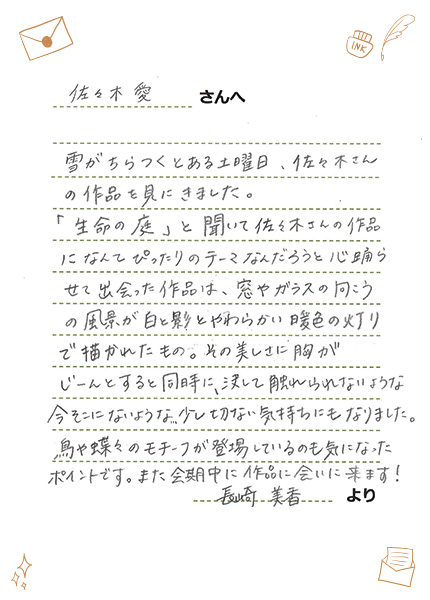 INK
佐々木 愛 さんへ
雪がちらつくとある土曜日、佐々木さん
の作品を見にきました。
「生命の庭」と聞いて佐々木さんの作品
になんてぴったりのテーマなんだろうと心踊ら
せて出会った作品は、窓やガラスの向こう
の風景が白と影とやわらかい暖色の灯り
で描かれたもの。その美しさに胸が
じーんとすると同時に、決して触れられないような
今そこにないような、少し切ない気持ちにもなりました。
鳥や蝶々のモチーフが登場しているのも気になった
ポイントです。また会期中に作品に会いに来ます!
長崎 美香 より